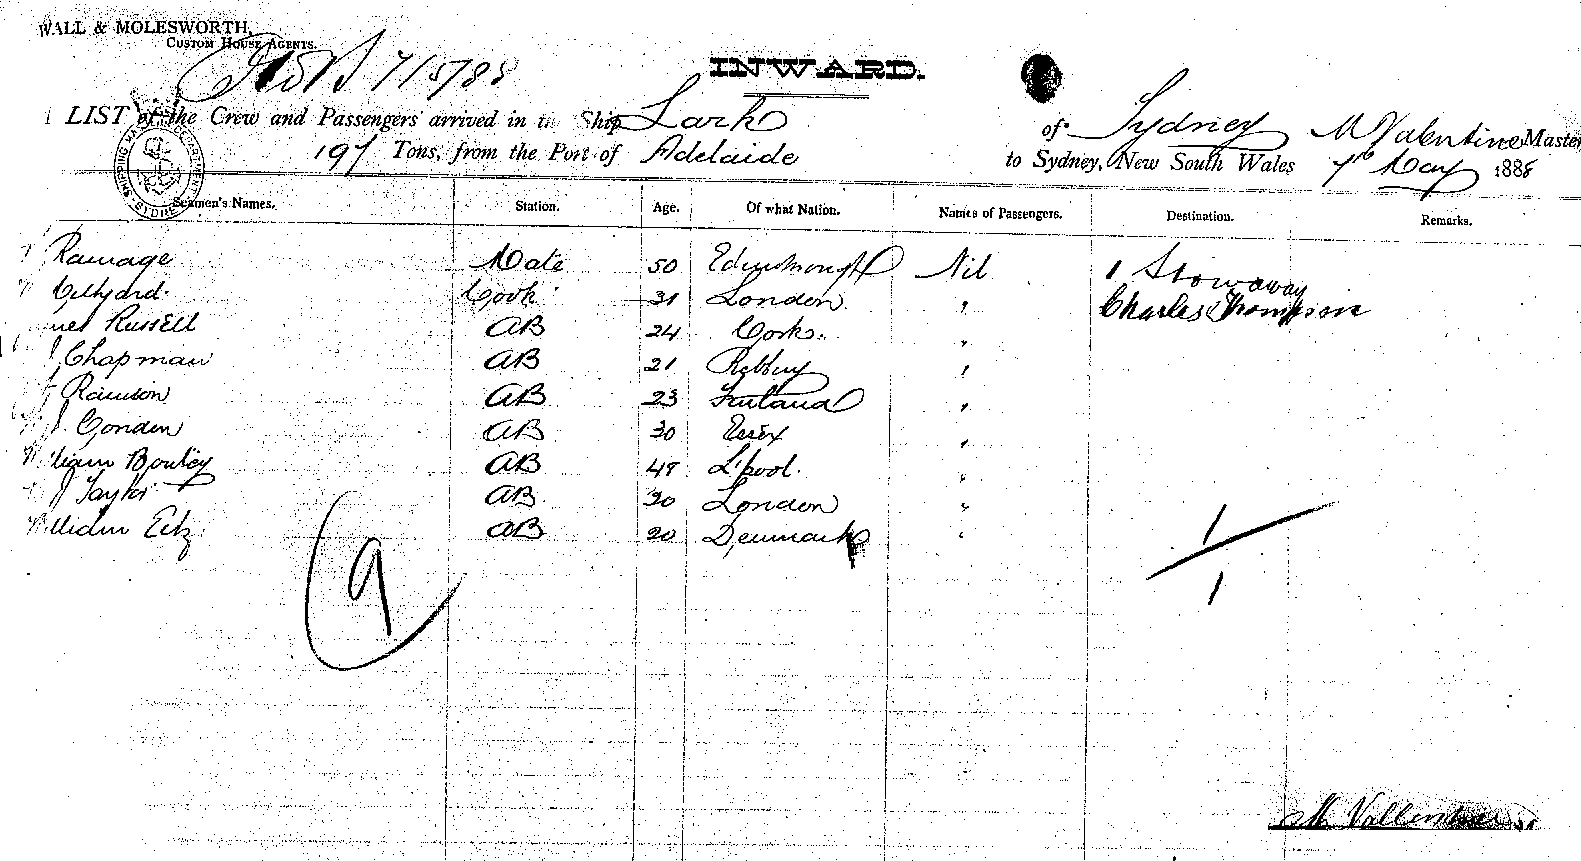 WALL & MOLESWORTH,
CUSTOM HOUSE AGENTS.
7/5/88
INWARD.
LIST of the Crew and Passengers arrived in the Ship Lark of Sydney M Valentine Master
197 Tons, from the Port of Adelaide to Sydney, New South Wales 7th May 1888
SHIPPING MASTER'S DEPARTMENT SYDNEY
Seamen's Names. Station. Age. Of what Nation. Names of Passengers. Destination. Remarks.
Ramage Mate 50 Edinborough Nil 1 Stowaway
Cook 31 London " Charles Thompson
Russell AB 24 Cork. "
J Chapman AB 21 "
AB 23 Finland "
J. Conden AB 30 Essex "
William AB L'pool. "
J Taylor AB 30 London "
William AB 20 Denmark "
9
1
1
M Vallentine